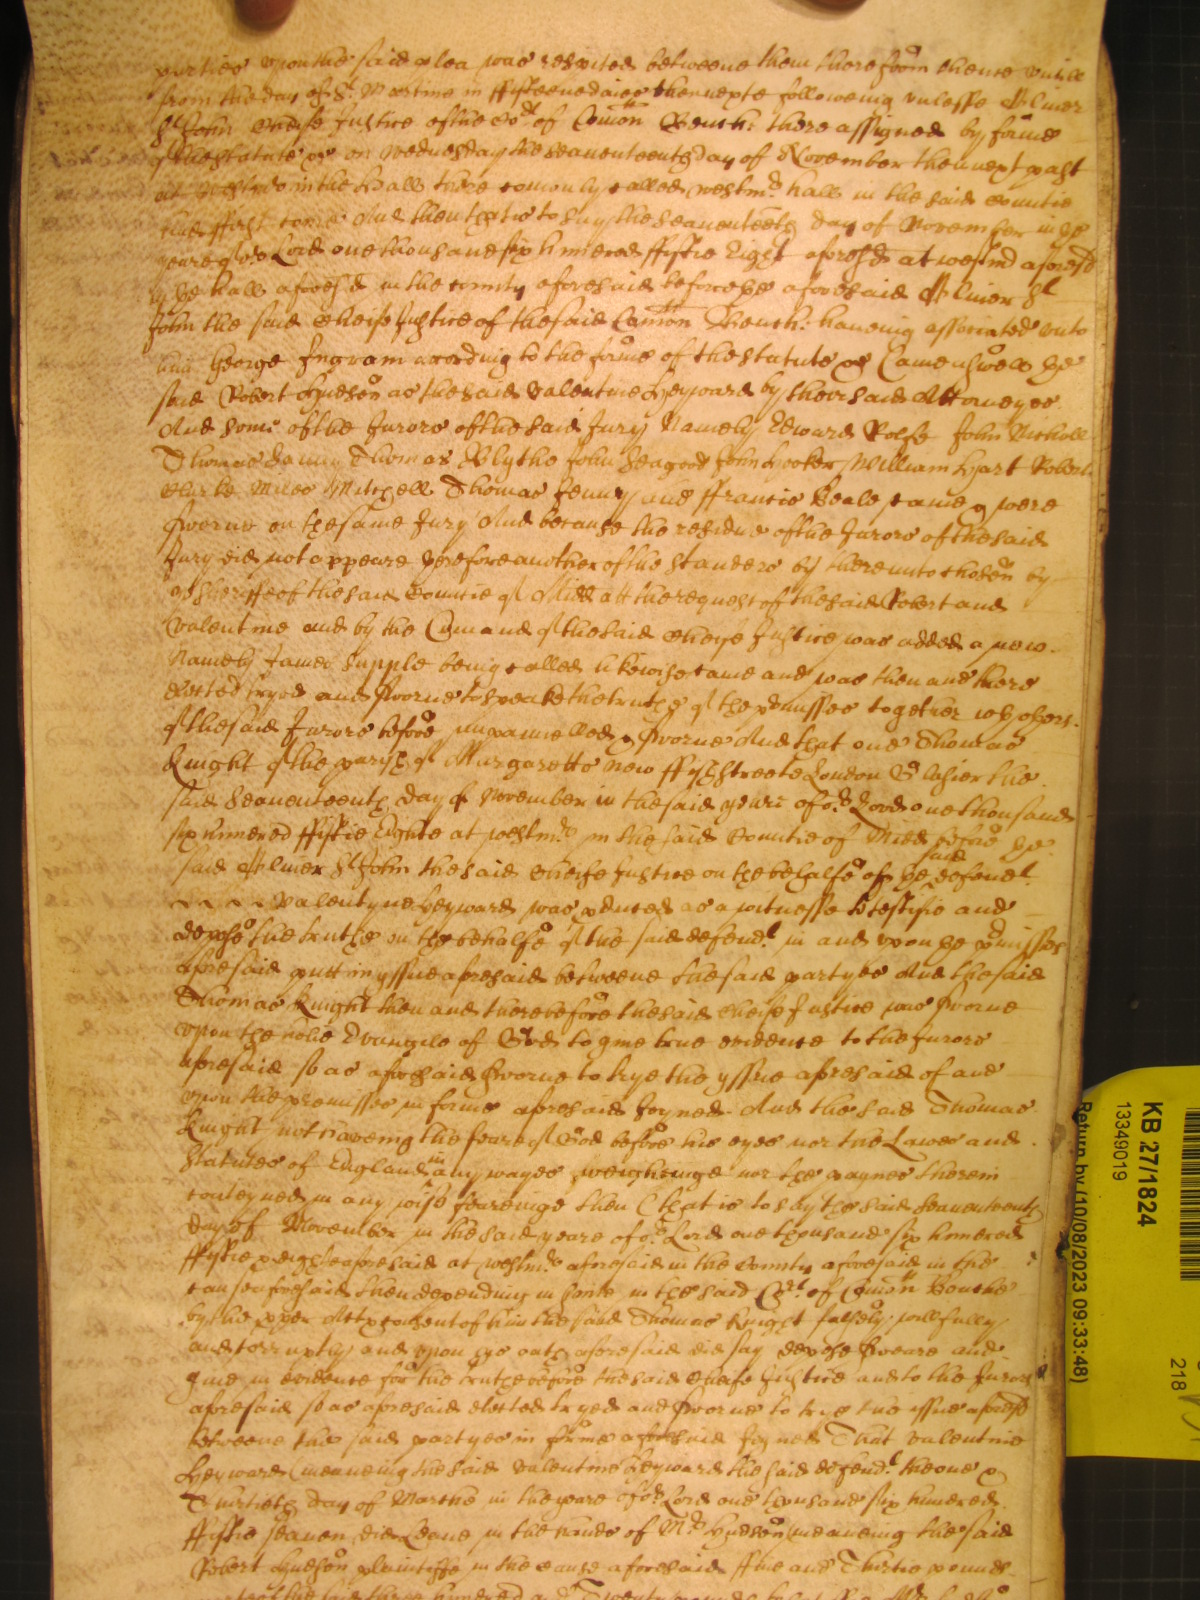 parties upon the said plea was respited betweene them therefrom thence untill
from the day of St Martine in ffifteene daies then nexte following unlesse Oliver
St John Cheife Justice of the Cort of Comon Bench there assigned by forme
of the statute &c on Wednesday the seaventeenth day of November then next past
at Westmr in the Hall there comonly called Westmr hall in the said Countie
should ffirst come And then that is to say the seaventeeth day of November in ye
yeare of or Lord one thousand six hundred ffiftie Eight aforesd at westmr aforesd
in ye hall aforesd in the county aforesaid before ye aforesaid Oliver St
John the said Cheife Justice of the said Comon Bench: haveing associated unto
him George Ingram according to the forme of the statute &c Came as well ye
said Robert Hudson as the said Valentine Heyward by their said Attorneyes
And some of the Jurors of the said Jury Namely Edward Rolfe John Nicholl
Thomas Thomas Blythe John Seagood John Hooker William Hart Robert
Clarke Miles Mitchell Thomas Jenny and ffrancis Beale came & were
sworne on the same Jury And because the residue of the Jurors of the said
Jury did not appeare therefore another of the standers by thereunto chosen by
ye Sheriffe of the said Countie of Midd att the request of the said Robert and
Valentine and by the Comand of the said Cheife Justice was added a new
Namely James Supple being called likewise came and was then and there
elected tryed and sworne to speake the truth of the premisses together wth others
of the said Jurors before impannelled & sworne And that one Thomas
Knight of the parish of Margaretts new ffysh streete London Glasier the
said seaventeenth day of November in the said yeare of or Lord one thousand
six hundred ffiftie Eighte at westmr in the said Countie of Midd before ye
said Oliver St John the said Cheife Justice on the behalfe of ye said defendt
Valentyne Heyward was pduced as a witnesse to testifie and
depose the truthe on the behalfe of the said defendt in and upon ye pmisses
aforesaid putt in yssue aforesaid betweene the said partyes And the said
Thomas Knight then and there before the said Cheife Justice was sworne
upon the holie Evangile of God to give true evidence to the Jurors
aforesaid so as aforesaid sworne to trye the yssue aforesaid of and
upon the premisses in forme aforesaid Joyned And the said Thomas
Knight not haveing the feare of God before his eyes nor the Lawes and
Statutes of England in any wayes weighinge nor the paynes therein
conteyned in any wise feareinge then (that is to say the said seaventeenth
day of November in the said yeare of or Lord one thousand six hundred
ffiftie eighte aforesaid at westmr aforesaid in the County aforesaid in the
cause aforesaid then depending in suite in the said Cort of Comon Benche
by the pper Act & consent of him the said Thomas Knight falsely willfully
and corruptly and upon his oath aforesaid did say depose sweare and
give in evidence for the truth before the said Cheife Justice and to the Jurors
aforesaid so as aforesaid elected tryed and sworne to trie the issue aforesd
betweene the said partyes in forme aforesaid Joyned That Valentine
Heyward (meaneing the said Valentine Heyward the said defendt) the one &
Thirtieth day of Marche in the yeare of or Lord one thousand six hundred
ffiftie seaven did Leave in the hands of Mr Hudson (meaneing the said
Robert Hudson plaintiffe in the cause aforesaid) ffive and Thirtie pounds
KB 27/1824
13349019
Return by (10/08/2023 09:33:48)
218